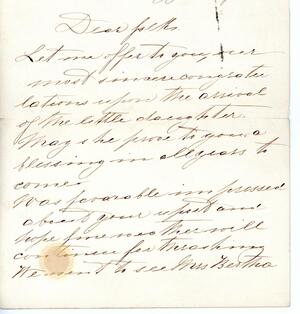 Dear folks
Let me offer to you, our
most sincere congratu
lations upon the arrival
of the little daughter.
May she prove to you, a
blessing in all years to
come.
Was favorable impressed
about your report and
hope fine weather will
continue for thrashing
We went to see Mrs Bertha